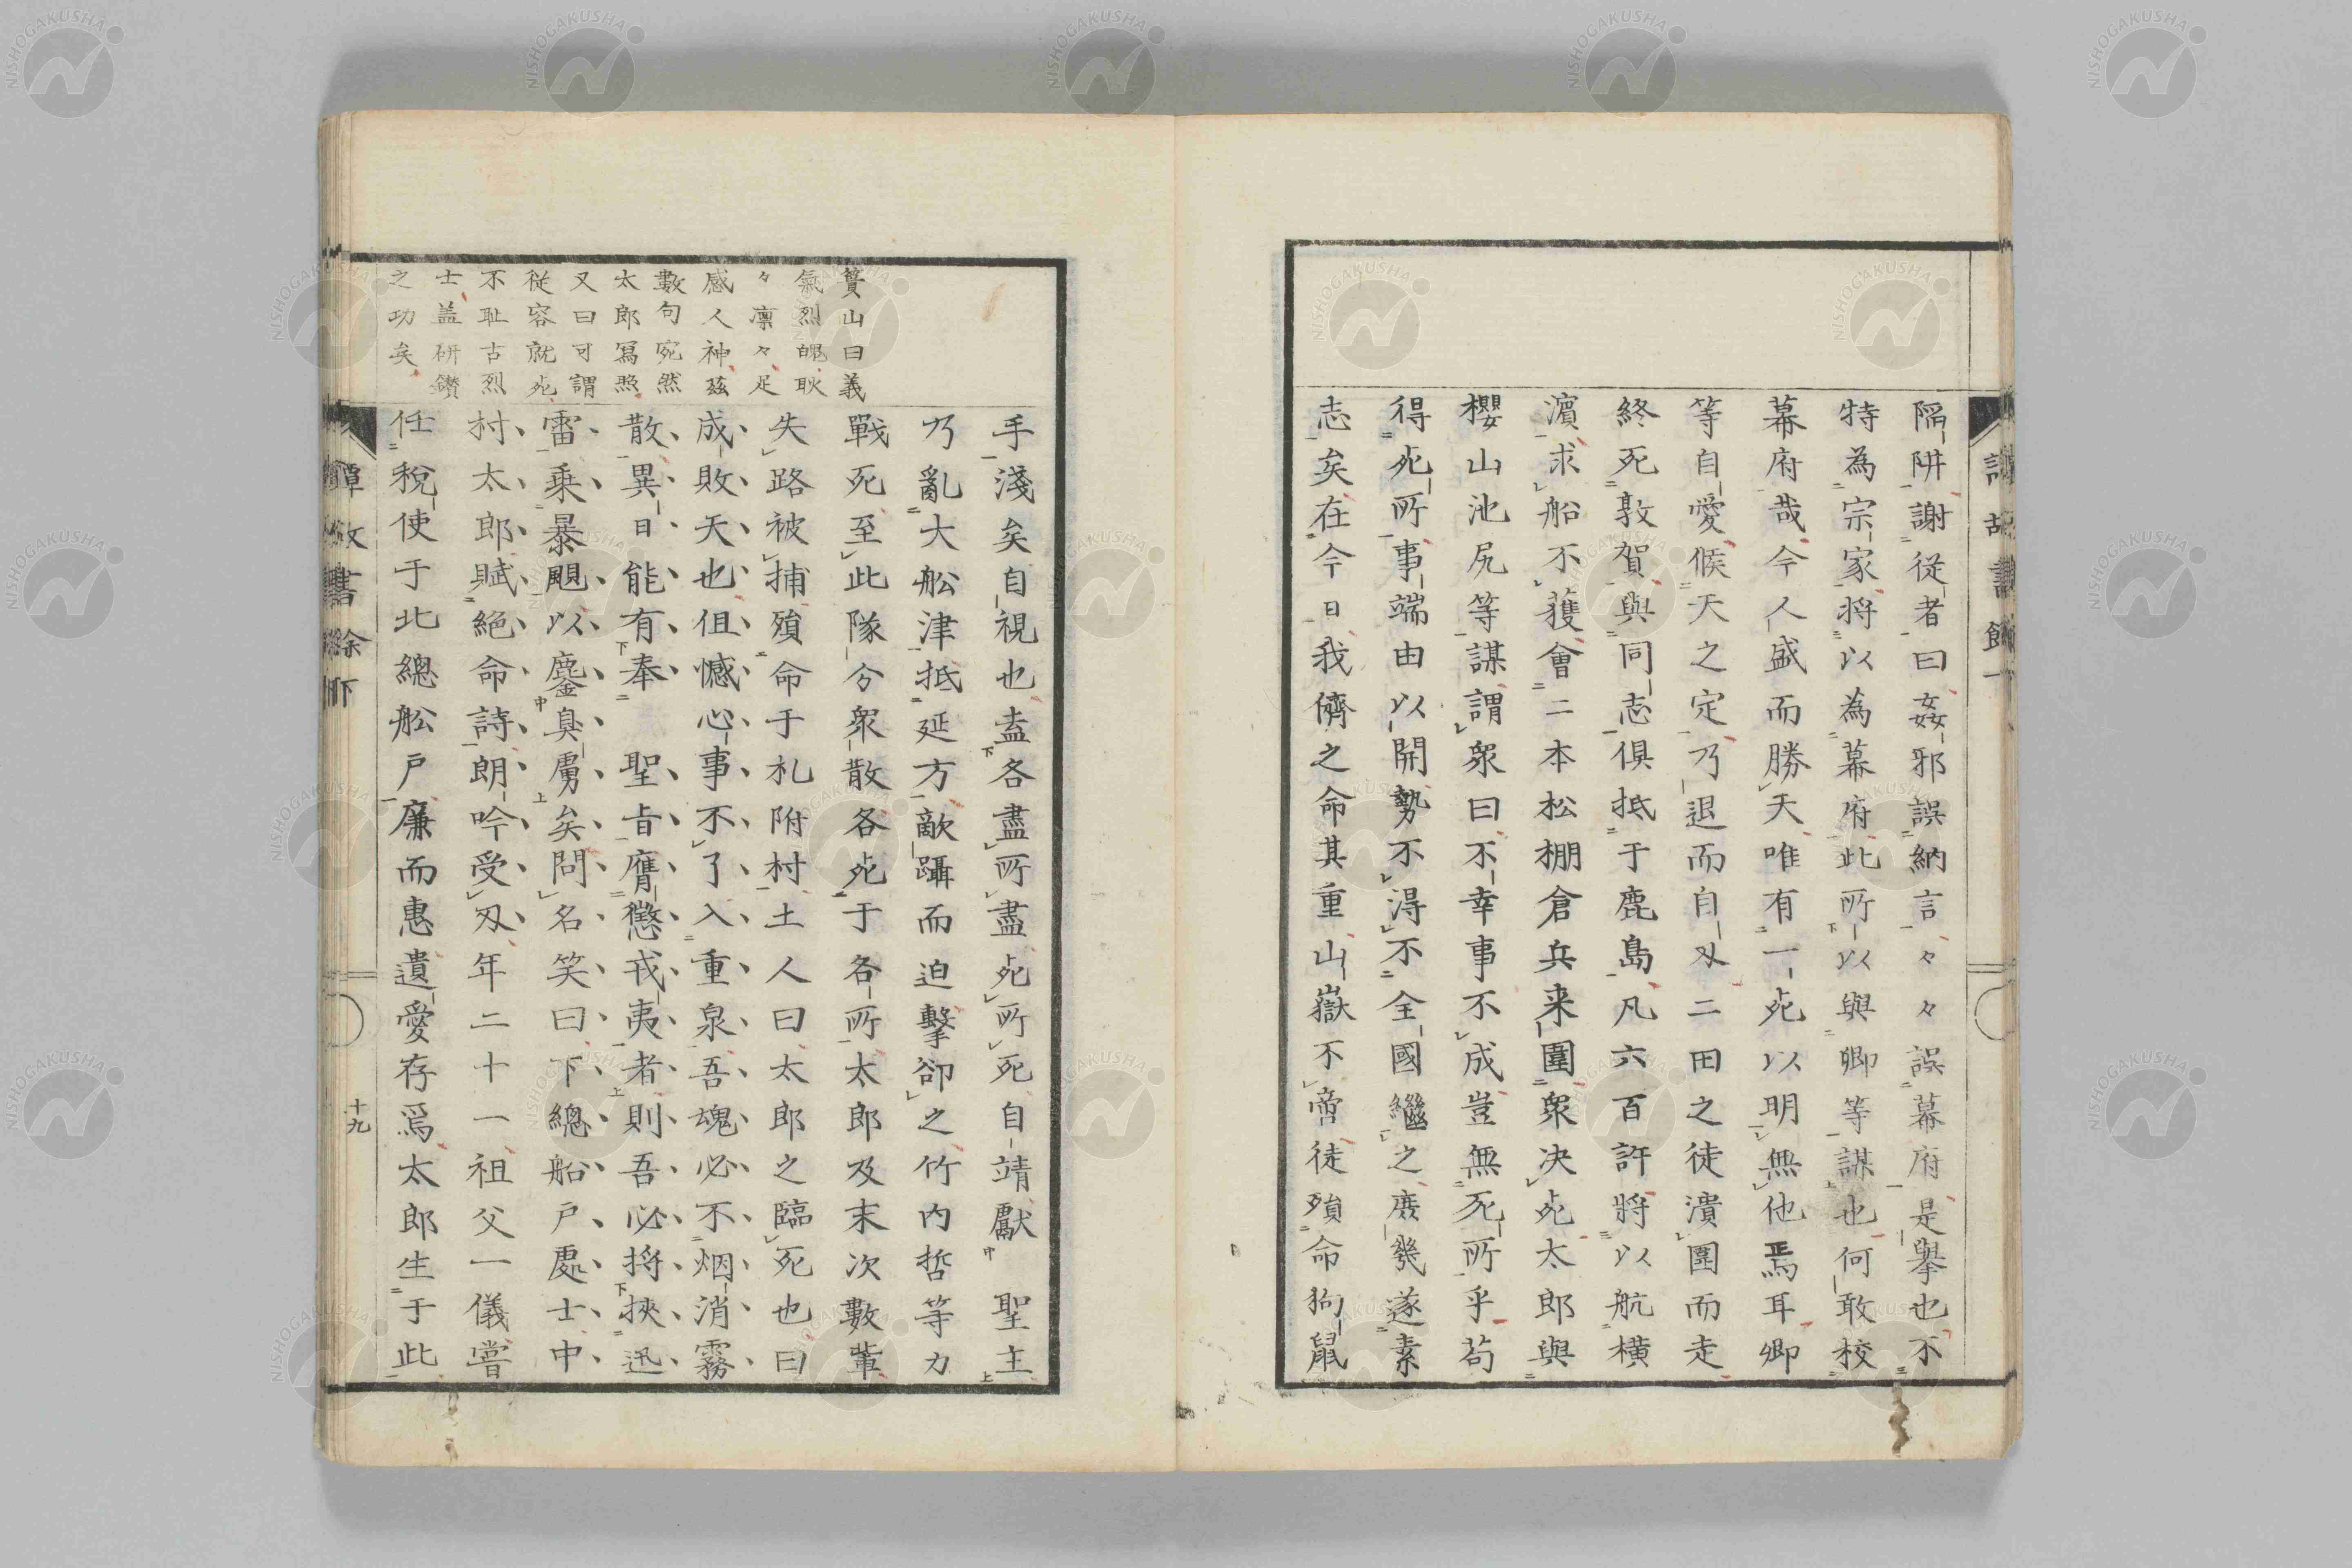 陷阱謝從者曰姦邪誤納言々々誤幕府是擧也不
特為宗家將以為幕府此所以與卿等謀也何敢校
幕府哉今人盛而勝天唯有一死以明無他焉耳卿
等自愛候天之定乃退而自刄二田之徒潰圍而走
終死敦賀與同志俱抵于鹿島凡六百許將以航橫
濵求船不獲會二本松棚倉兵来圍衆决死太郎與
櫻山池尻等謀謂衆曰不幸事不成豈無死所乎苟
得死所事端由以開勢不得不全國繼之庶幾遂素
志矣在今日我儕之命其重山嶽不啻徒殞命狗鼠
手淺矣自視也盍各盡所盡死所死自靖獻 聖主
乃亂大舩津抵延方敵躡而迫擊卻之竹内哲等力
戰死至此隊分衆散各死于各所太郎及末次數輩
失路被捕殞命于札附村土人曰太郎之臨死也曰
成敗天也但憾心事不了入重泉吾魂必不烟消霧
散異日能有奉 聖旨膺懲戎夷者則吾必將挾迅
雷乗暴颶以鏖臭虜矣問名笑曰下總船戸處士中
村太郎賦絕命詩朗吟受刄年二十一祖父一儀嘗
任稅使于北總舩戸廉而惠遺愛存焉太郎生于此
簣山曰義
氣烈魄耿
々凛々足
感人神茲
數句宛然
太郎冩照
又曰可謂
從容就死
不耻古烈
士盖研鑚
之功矣
譚故書餘下
十九